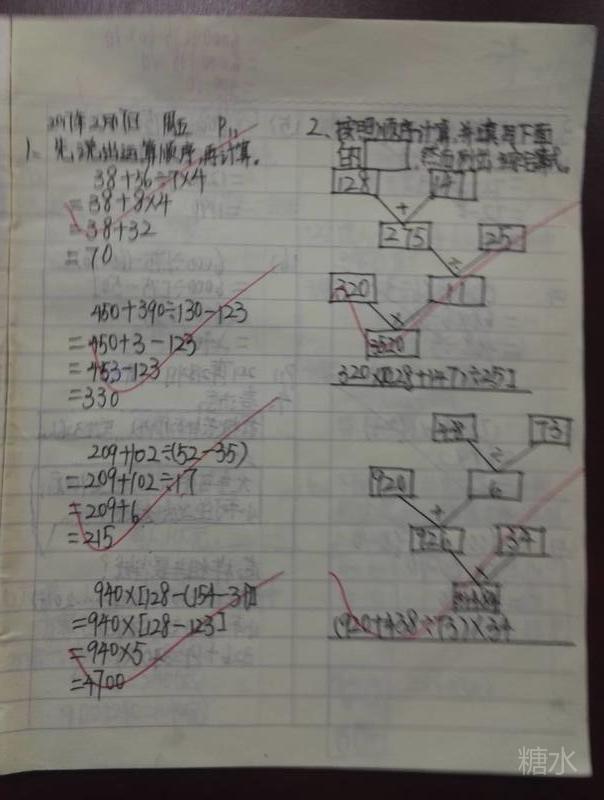 P11
1、先说出运算顺序,再计算。
38+36÷9×4
=38+8×4
=38+32
=70
450+390÷130-123
=450+3-123
=453-123
=330
209+102÷(52-35)
=209+102÷17
=209+6
=215
940×[128-(154-31)]
=940×[128-123]
=940×5
=4700
2、按照顺序计算,并填写下面
的 ,然后列出综合算式。
128 147
+
275 25
÷
320 11
×
3520
320×[(128+147)÷25]
438 73
÷
920 6
+
926 34
×
(920+438÷73)×34
糖水